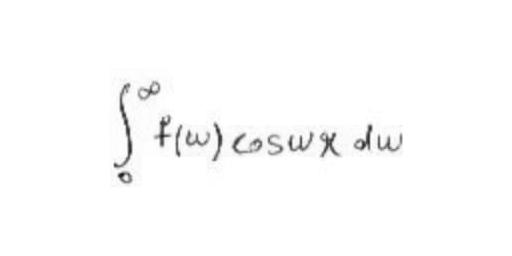 ∫₀^∞ f(w) cos wx dw